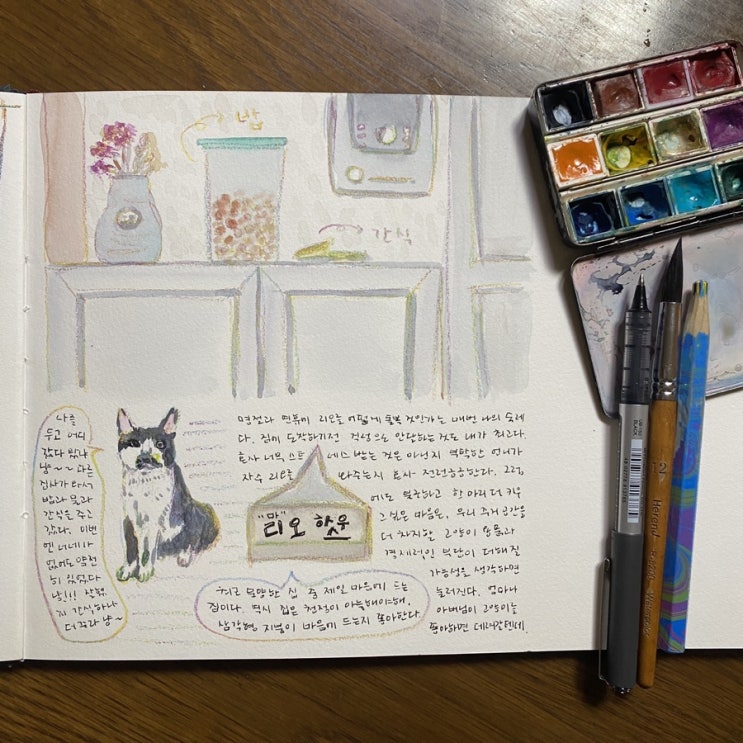 밥
간식
나를
두고 어디
갔다 왔냐
냥~~ 다른
집사가 와서
밥과 물과
간식을 주고
갔다. 이번
엔 너네가
없어도 얌전
히 있었다
냥!!
간식이나
더 줘라 냥~
명절과 연휴에 리오를 어떻게 돌볼 것인가는 매번 나의 숙제
다. 집에 도착하기전 걱정으로 안달하는 것도 내가 최고다.
혹시 너무 스트레스 받는 것은 아닌지 부탁한 언니가
자주 리오를 봐주는지 혹시 전전긍긍한다. 그럼
에도 불구하고 한 마리 더 키우
고 싶은 마음은, 우리 주거 공간을
더 차지할 고양이 용품과
경제적인 부담이 더해질
가능성을 생각하면
눌러진다. 엄마나
아버님이 고양이를
좋아하면 데려갈텐데.
"마"
리오 하우스
최근 장만한 집 중 제일 마음에 드는
집이다. 역시 집은 천정이 아늑해야해.
삼각형 지붕이 마음에 드는지 좋아한다.
UB-150
BLACK
12
Herend